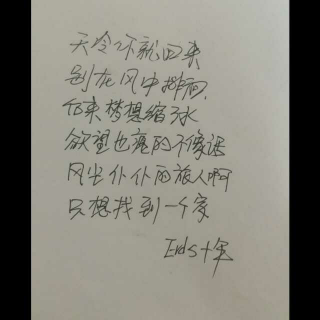 天冷了就回来
别在风中徘徊
梦想缩了水
欲望也瘦的不像话
风尘仆仆的旅人啊
只想找到一个家
十年